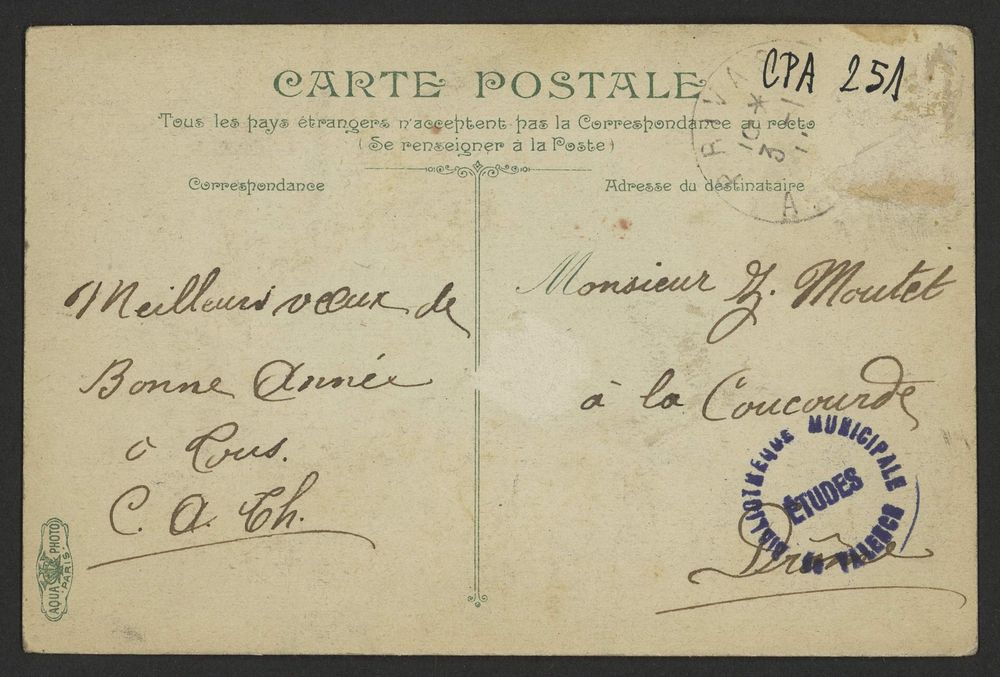 CARTE POSTALE
CPA 251
Tous les pays étrangers n'acceptent pas la Correspondance au recto
(Se renseigner à la Poste)
Correspondance
Meilleurs vœux de
Bonne Année
à Tous.
C. A. Th.
Adresse du destinataire
Monsieur J. Moutet
à la Coucourde
Drôme
BIBLIOTHEQUE MUNICIPALE
ÉTUDES
DE VALENCE
AQUA PHOTO
PARIS
PRIVA
10 *
3
A